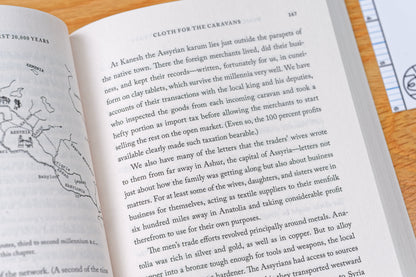 EST 20,000 YEARS
ARMENIA
ASSYRIA
Babylon
outes, third to second millennium B.C.,
this chapter.
of the network. (A second of the
CLOTH FOR THE CARAVANS
167
At Kanesh the Assyrian karum lies just outside the parapets
of the native town. There the foreign merchants lived, did their busi-
ness, and kept their records—written, fortunately for us, in cunei-
form on clay tablets, which survive the millennia very well. We have
accounts of their transactions with the local king and his deputies,
who inspected the goods from each incoming caravan and took a
hefty portion as import tax before allowing the merchants to start
selling the rest on the open market. (Even so, the 100 percent profits
available clearly made such taxation bearable.)
We also have many of the letters that the traders' wives wrote
to them from far away in Ashur, the capital of Assyria—letters not
just about how the family was getting along but also about business
matters. For at least some of the wives, daughters, and sisters were in
business for themselves, acting as textile suppliers to their menfolk
six hundred miles away in Anatolia and taking considerable profit
therefrom to use for their own purposes.
The men's trade efforts revolved principally around metals. Ana-
tolia was rich in silver and gold, as well as copper. But to alloy
copper into a bronze tough enough for tools and weapons, the local
hardener. The Assyrians had access to sources
transported to Syria